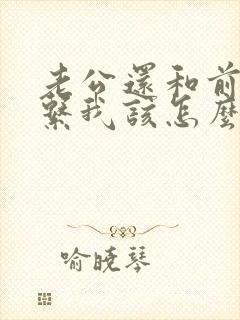 老公還和前
繫我該怎麼
喻曉琴